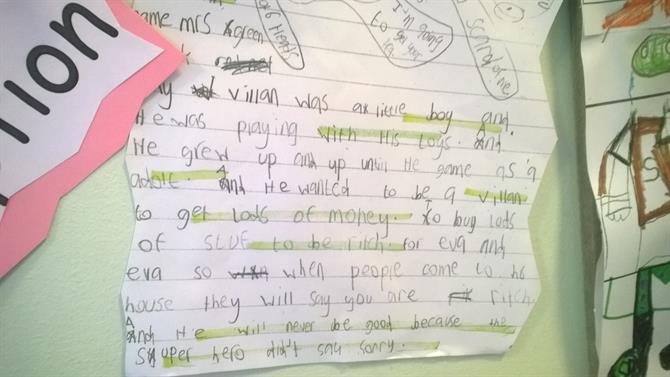 tion
I'm going
to get you
ame mrs green
my villan was a little boy and
He was playing with His toys. And
He grew up and up until He came as a
adolt. And He wanted to be a villan
to get lods of money. to buy lods
of stuf to be ritch for eva and
eva so when people come to his
house they will say you are ritch.
And He will never be good because the
super hero didn't say sorry.
S